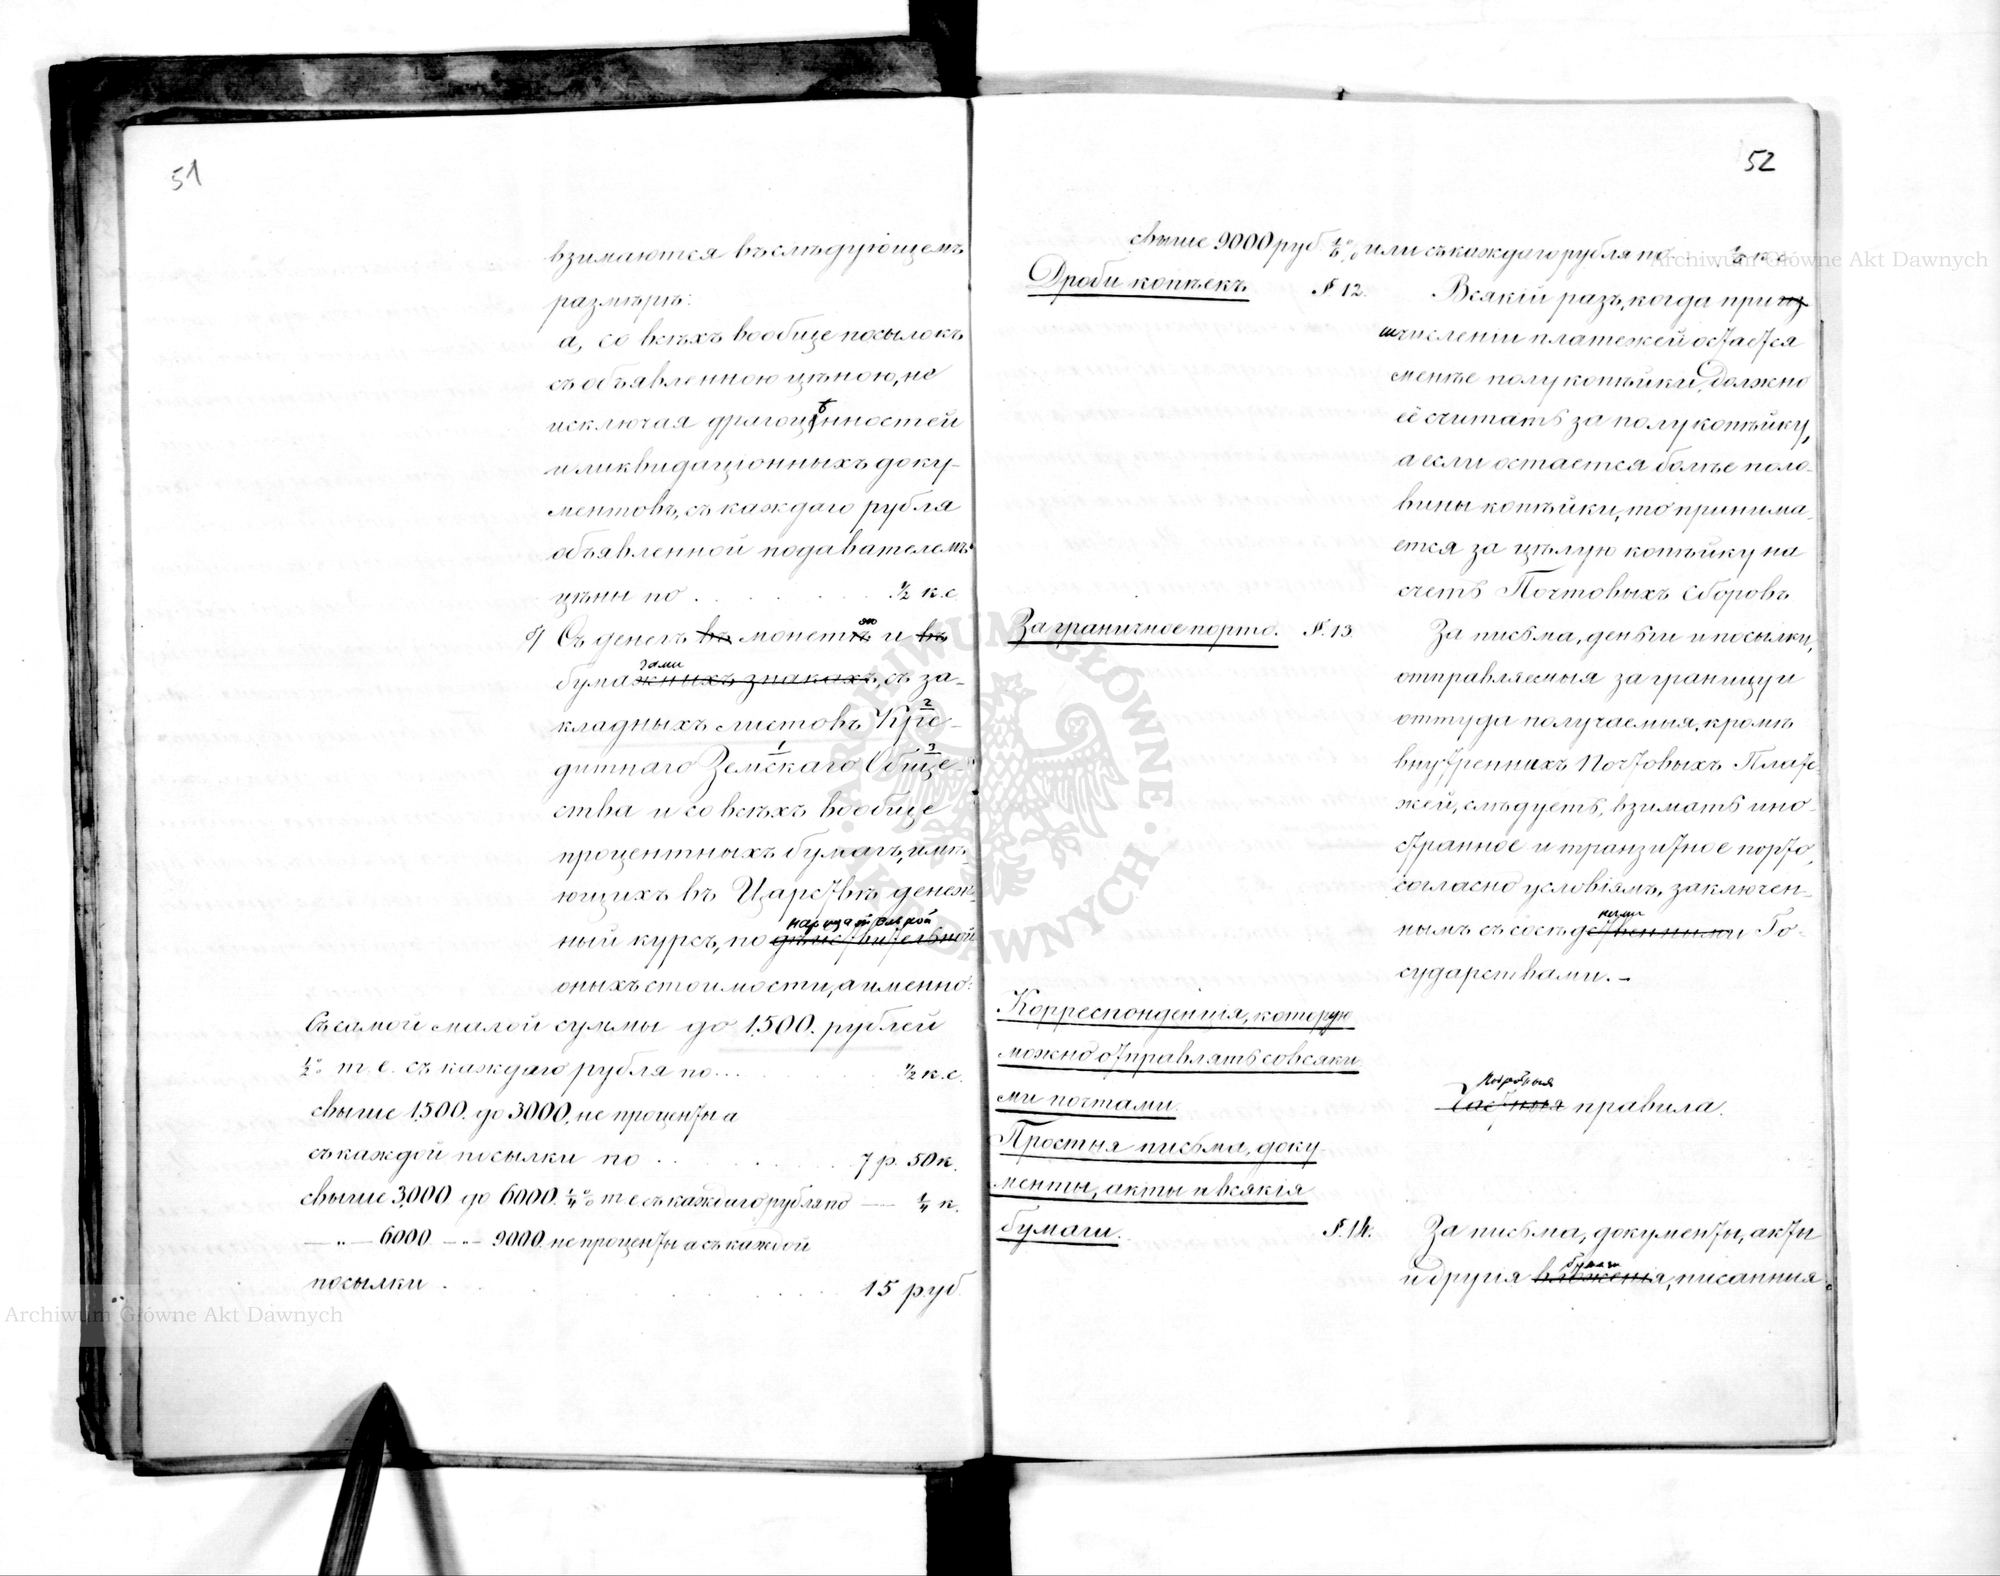 51
взимаются въ слѣдующемъ
размѣрѣ:
а, со всѣхъ вообще посылокъ
съ объявленною цѣною, не
исключая драгоцѣнностей
и ликвидаціонныхъ доку-
ментовъ, съ каждаго рубля
объявленной подавателемъ
цѣны по . . . . . ½ к.с.
б) Съ денегъ въ монетѣ ою и въ
зами
бумажныхъ знакахъ, съ за-
кладныхъ листовъ Кре- 2
дитнаго Земскаго Обще- 1 3
ства и со всѣхъ вообще
процентныхъ бумагъ, имѣ-
ющихъ въ Царствѣ денеж-
нарицательной
ный курсъ, по дѣйствительной
оныхъ стоимости, а именно:
Съ самой малой суммы до 1,500. рублей
½% т.е. съ каждаго рубля по . . . ½ к.с.
свыше 1,500. до 3000, не проценты а
съ каждой посылки по . . . 7 р. 50 к.
свыше 3,000 до 6000. ¼% т е съ каждаго рубля по — ¼ к.
— „ — 6000 — „ — 9000 не проценты а съ каждой
посылки . . . . . 15 руб
52
свыше 9000 руб. % или съ каждаго рубля по к.с
Дроби копѣекъ §. 12. Всякій разъ, когда при
счисленіи платежей остается
менѣе полукопѣйки, должно
её считать за полукопѣйку,
а если остается болѣе поло-
вины копѣйки, то принима-
ется за цѣлую копѣйку на
счетъ Почтовыхъ сборовъ
Заграничное порто. §. 13. За письма, деньги и посылки,
отправляемыя за границу и
оттуда получаемыя, кромѣ
внутреннихъ Почтовыхъ Плате-
жей, слѣдуетъ, взимать ино-
странное и транзитное порто,
согласно условіямъ, заключен-
ними
нымъ съ сосѣдственными Го-
сударствами. –
Корреспонденція, которую
можно отправлять со всяки-
ми почтами.
Подробныя
Частныя правила.
Простыя письма, доку-
менты, акты и всякія
бумаги. §. 14. За письма, документы, акты
бумаги
и другія вложенія, писанныя
ARCHIWUM GŁÓWNE AKT DAWNYCH
Archiwum Główne Akt Dawnych
Archiwum Główne Akt Dawnych